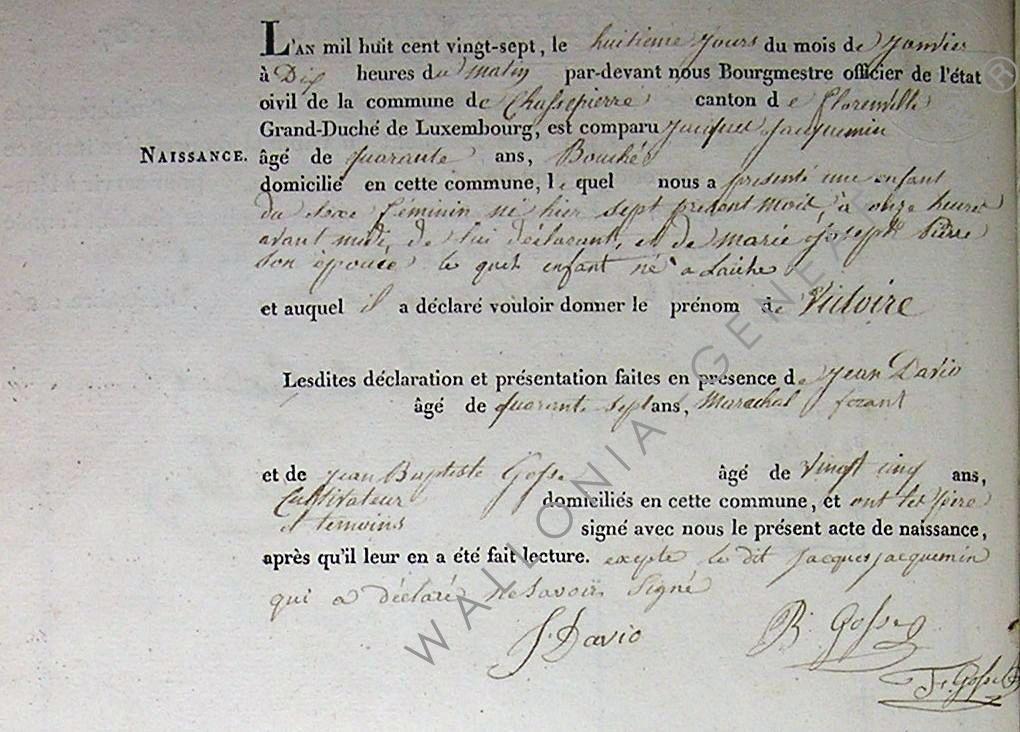 L'AN mil huit cent vingt-sept, le huitieme jours du mois de Janvier
à Dix heures du matin par-devant nous Bourgmestre officier de l'état
civil de la commune de Chassepierre canton de florenville
Grand-Duché de Luxembourg, est comparu Jacques Jacquemin
NAISSANCE. âgé de quarante ans, Bouché
domicilié en cette commune, le quel nous a présenté une enfant
du sexe féminin né hier sept present mois, à onze heures
avant midi, de lui déclarant, et de marie Joseph Pierre
son épouse le quel enfant né a Laiche
et auquel il a déclaré vouloir donner le prénom de Victoire
Lesdites déclaration et présentation faites en présence de jean Davio
âgé de quarante sept ans, marechal ferant
et de jean Baptiste Gosse âgé de vingt cinq ans,
Cultivateur domiciliés en cette commune, et ont les père
et temoins signé avec nous le présent acte de naissance,
après qu'il leur en a été fait lecture. exepte le dit jacques jacquemin
qui a déclaré ne savoir signé
J. Davio B. Gosse
F. Gosse
WALLONIA GENEA
®